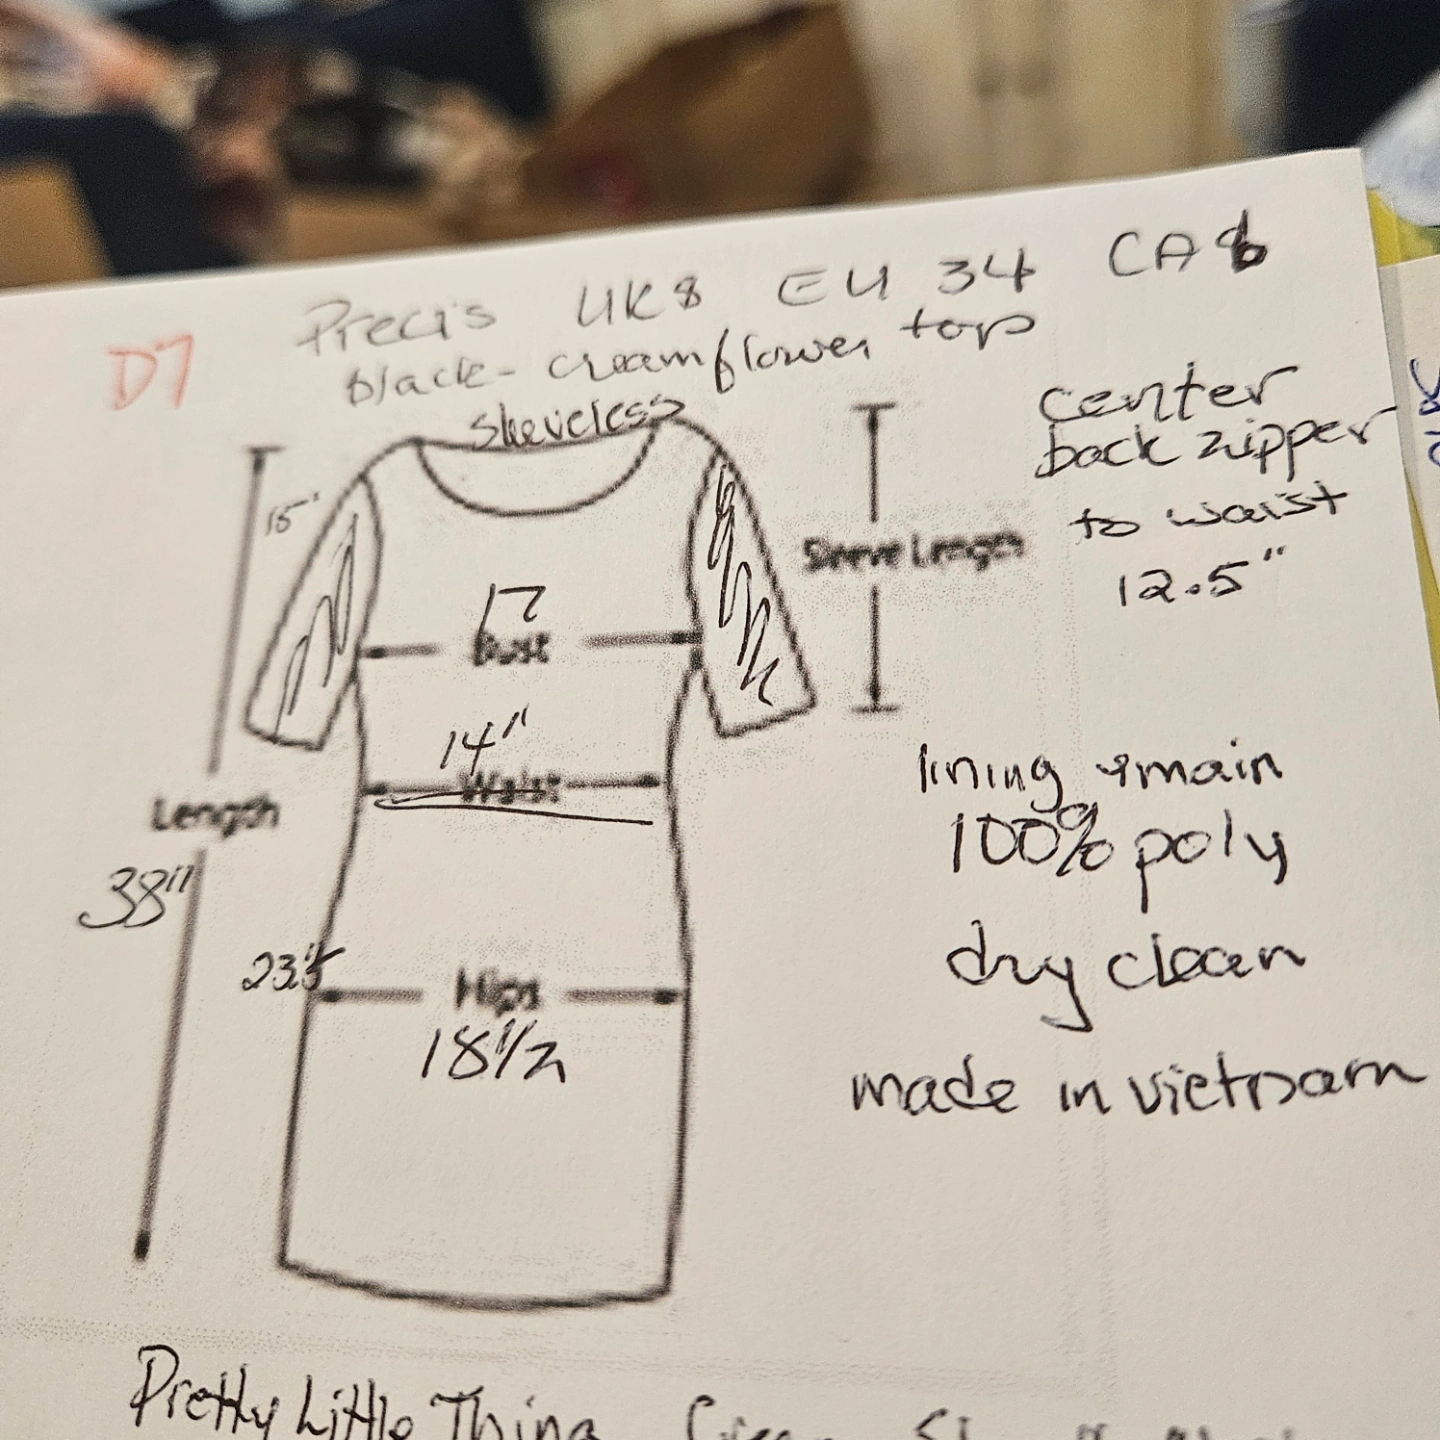 D7
Precis UK8 EU 34 CA6
black-cream flower top
sleveless
center
back zipper
to waist
12.5"
15"
Sleeve Length
17
Bust
14"
Waist
Length
38"
lining & main
100% poly
dry clean
made in vietnam
23.5
Hips
18 1/2
Pretty Little Thing